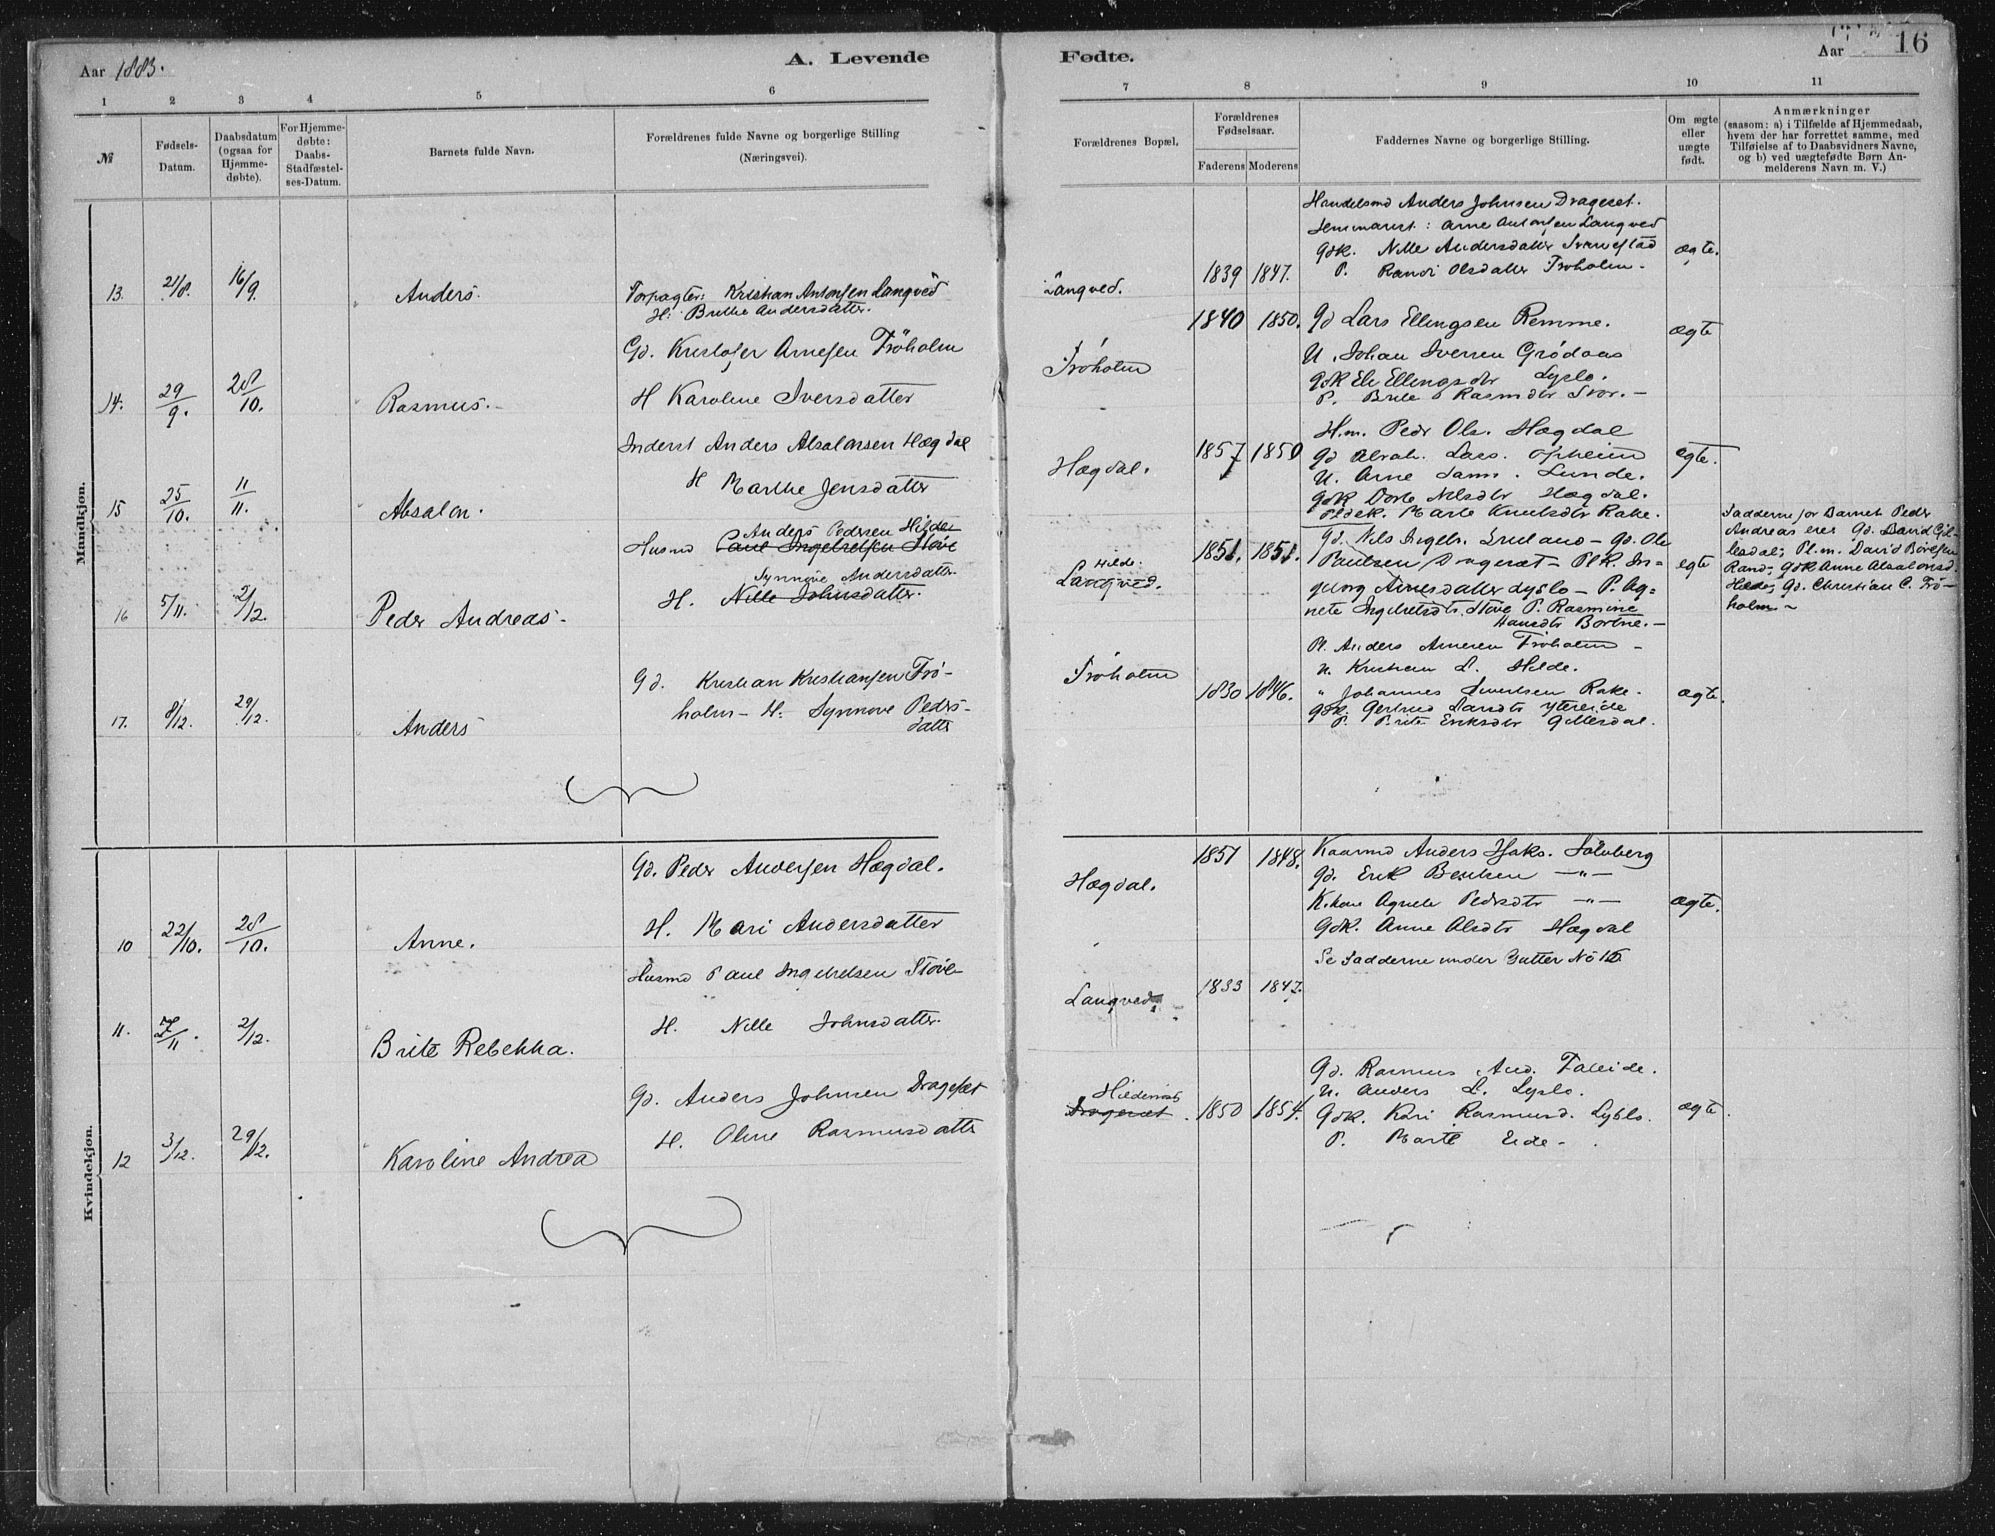 Aar 1883.
A. Levende
Fødte.
Aar
16
1 2 3 4 5 6 7 8 9 10 11
№
Fødsels-
Datum.
Daabsdatum
(ogsaa for
Hjemme-
døbte).
For Hjemme-
døbte:
Daabs-
Stadfæstel-
ses-Datum.
Barnets fulde Navn.
Forældrenes fulde Navne og borgerlige Stilling
(Næringsvei).
Forældrenes Bopæl.
Forældrenes
Fødselsaar.
Faderens Moderens
Faddernes Navne og borgerlige Stilling.
Om ægte
eller
uægte
født.
Anmærkninger
(saasom: a) i Tilfælde af Hjemmedaab,
hvem der har forrettet samme, med
Tilføielse af to Daabsvidners Navne,
og b) ved uægtefødte Børn An-
melderens Navn m. V.)
Mandkjøn.
13. 21/8. 16/9. Anders.
Forpagter: Kristian Antonsen Langved
H: Brithe Andersdatter.
Langved.
1839 1847.
Handelsmd Anders Johnsen Drageset.
Seminarist: Arne Antonsen Langved
Gdk. Nille Andersdatter
P. Randi Olsdatter Frøholm.
ægte.
14. 29/9. 28/10. Rasmus.
Gd. Kristofer Arnesen Frøholm
H Karoline Iversdatter
Frøholm
1840 1850.
Gd Lars Ellingsen Remme.
U. Johan Iversen Grødaas
Gdk Eli Ellingsdtr Lyslo.
P. Brite Rasmdtr Stor.
ægte
15 25/10. 11/11. Absalon.
Inderst Anders Absalonsen Hægdal
H Marthe Jensdatter
Hægdal.
1857 1850
H.m. Peder Ols. Hægdal
Gd Abrah. Lars. Opheim
U. Arne Sam. Lunde.
Gdk Dorte Nilsdtr Hægdal.
Marte Knutsdtr Rake.
ægte.
16 5/11. 2/12. Peder Andreas.
Anders Pedersen Hilde
Husmd Paul Ingebretsen Støve
Synnøve Andersdatter
H. Nille Johnsdatter.
Hilde.
Langved.
1851. 1851.
Gd. Nils Ingebr. — Gd. Ole
Paulsen Dragesæt — Plk. In-
geborg Arnesdatter Lyslo — P. Ag-
nete Ingebretsdtr. Støve P. Rasmine
Hansdtr Bortne.
ægte
Fadderne for Barnet Peder
Andreas erer Gd. David Gil-
lesdal; Pl.m. David Børesen
Rand, Gdk Anne Absalonsd.
Hilde, Gd. Christian C. Frø-
holm.
17. 8/12. 29/12. Anders
Gd. Kristian Kristiansen Frø-
holm — H: Synnøve Peders-
datter
Frøholm
1830 1846.
Pl. Anders Arnesen Frøholm
U. Kristian L. Hilde.
" Johannes Sivertsen Rake.
Gdk. Gertrud Larsdtr Ytreeide
P. Brite Eriksdtr Gillesdal.
ægte.
Kvindekjøn.
10 22/10. 28/10. Anne.
Gd. Peder Andersen Hægdal.
H. Mari Andersdatter
Hægdal.
1851 1848.
Kaarmd Anders Isaks. Solvberg
Gd. Erik Bentsen — " —
K.kone Agnete Pedersdtr — " —
Gdk. Anne Alsdtr Hægdal
ægte.
11. 2/12. Brite Rebekka.
Husmd Paul Ingebretsen Støve
H. Nille Johnsdatter
Langved
1833 1847.
Se Fadderne under Gutter No 16
12 3/12. 29/12. Karoline Andrea
Gd. Anders Johnsen Dragesæt
H. Oline Rasmusdatter
Hildenes
Dragesæt.
1850 1854.
Gd. Rasmus And. Faleide.
U. Anders L. Lyslo.
Gdk. Kari Rasmusd. Lyslo.
P. Marte Eide
ægte.